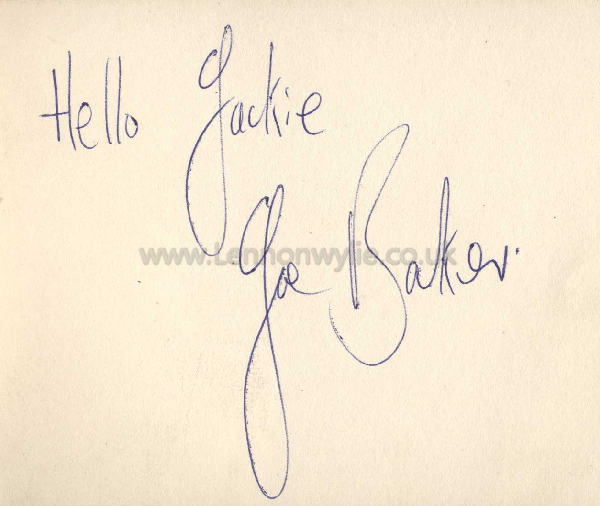 Hello Jackie
www.Lennonwylie.co.uk
Joe Baker.